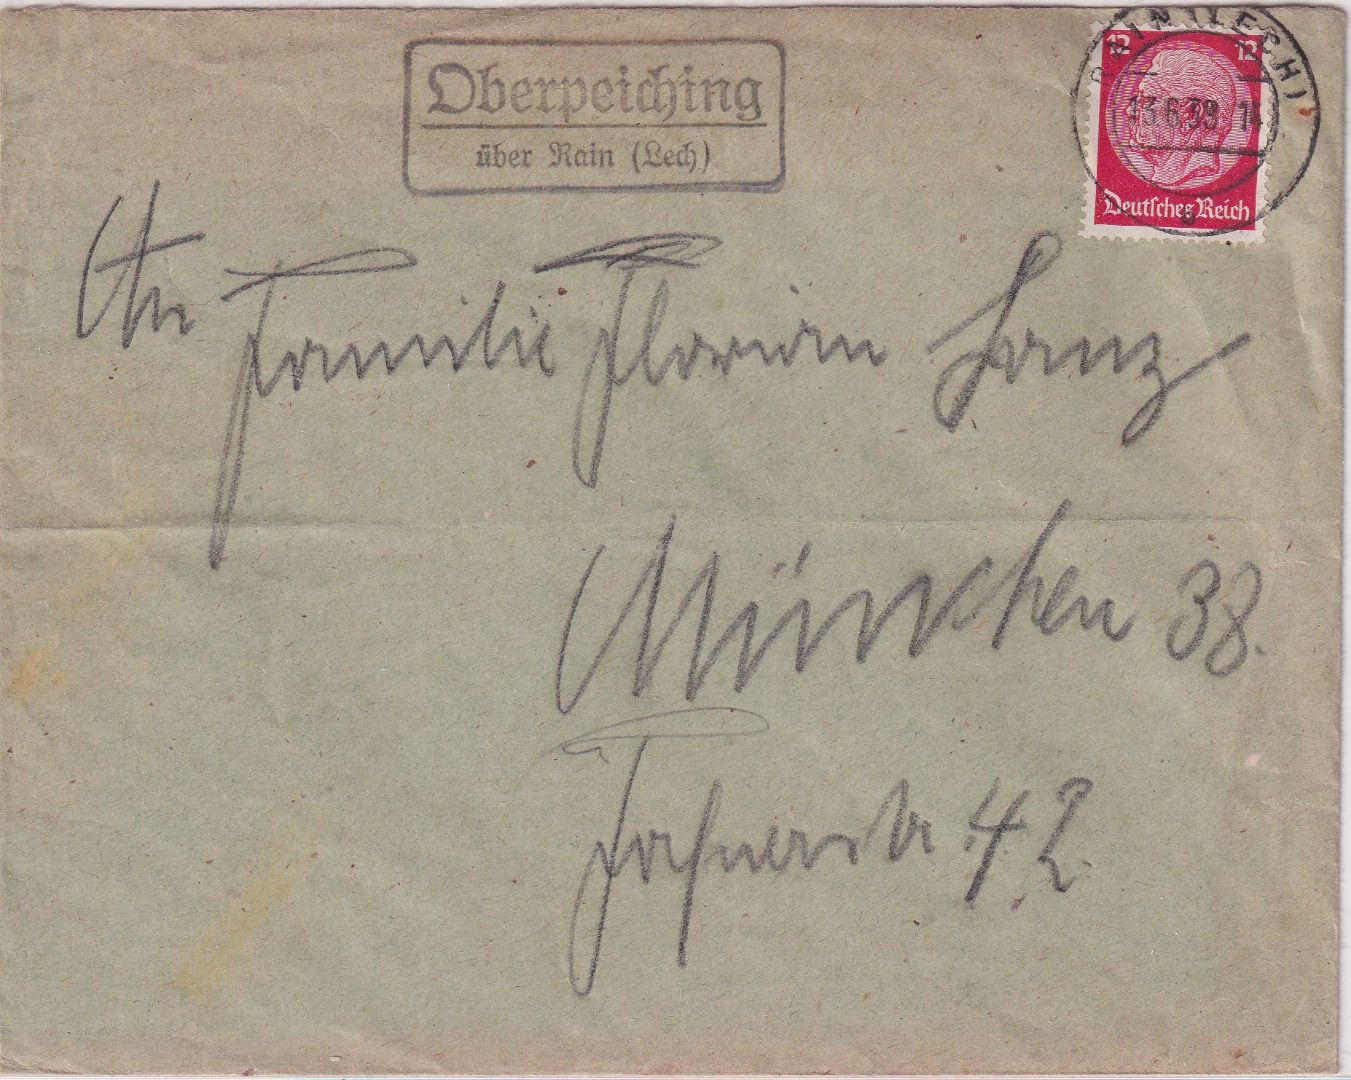 Oberpeiching
über Rain (Lech)
RAIN (LECH)
13.6.39 14
12 12
Deutsches Reich
An
Familie Florian Lanz
München 38.
42.